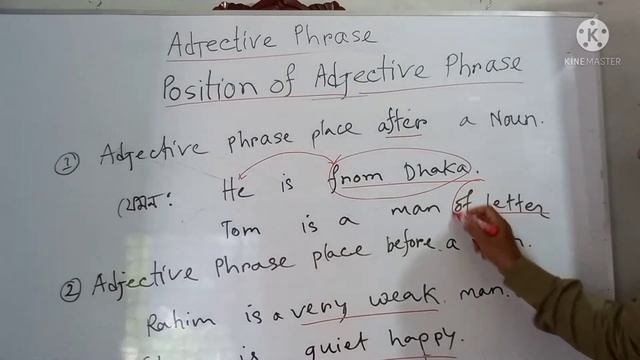 Adjective Phrase
KINEMASTER
Position of Adjective Phrase
① Adjective phrase place after a Noun.
যেমন: He is from Dhaka.
Tom is a man of letter
② Adjective Phrase place before a
Rahim is a very weak man.
is quiet happy.